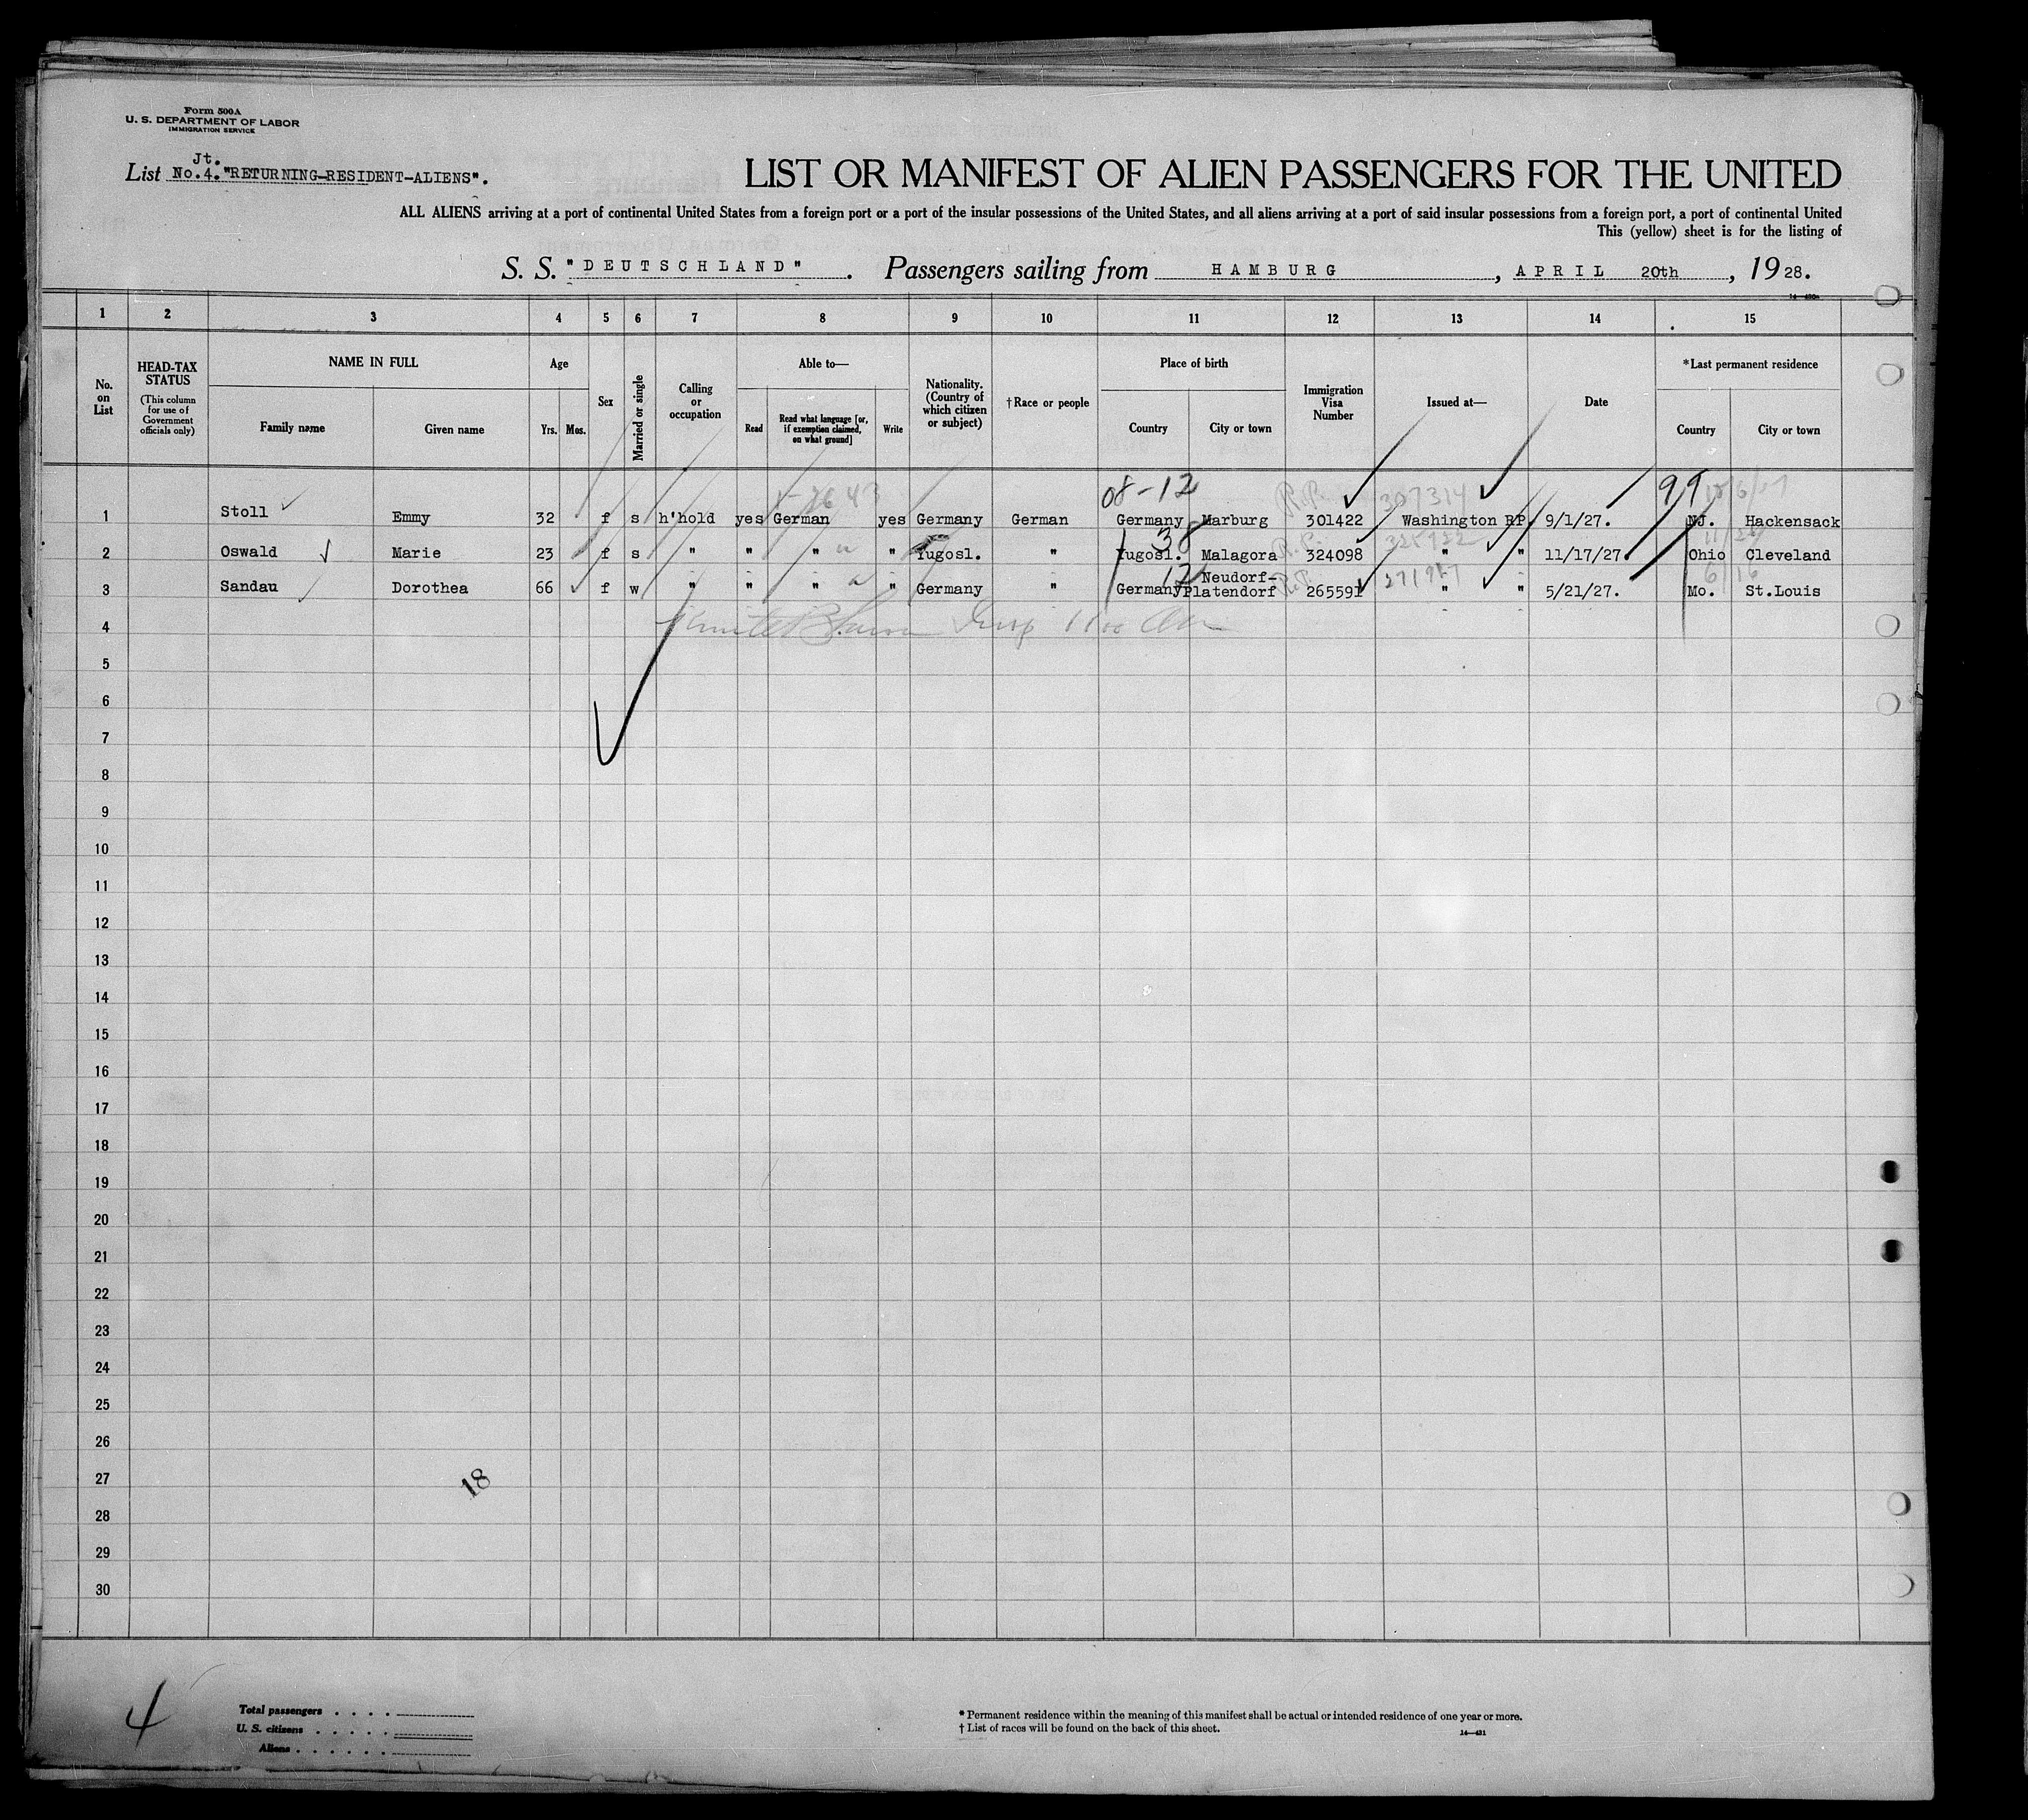 Form 500A
U. S. DEPARTMENT OF LABOR
IMMIGRATION SERVICE
Jt.
List No.4. "RETURNING-RESIDENT-ALIENS".
LIST OR MANIFEST OF ALIEN PASSENGERS FOR THE UNITED
ALL ALIENS arriving at a port of continental United States from a foreign port or a port of the insular possessions of the United States, and all aliens arriving at a port of said insular possessions from a foreign port, a port of continental United
This (yellow) sheet is for the listing of
S. S. "DEUTSCHLAND". Passengers sailing from HAMBURG, APRIL 20th, 1928.
1 2 3 4 5 6 7 8 9 10 11 12 13 14 15
No. on List
HEAD-TAX STATUS (This column for use of Government officials only)
NAME IN FULL
Family name Given name
Age
Yrs. Mos.
Sex
Married or single
Calling or occupation
Able to—
Read Read what language [or, if exemption claimed, on what ground] Write
Nationality. (Country of which citizen or subject)
†Race or people
Place of birth
Country City or town
Immigration Visa Number
Issued at—
Date
*Last permanent residence
Country City or town
08-12 307314 99
1 Stoll Emmy 32 f s h'hold yes German yes Germany German Germany Marburg 301422 Washington RP. 9/1/27. NJ. Hackensack
38
2 Oswald Marie 23 f s " " " " Yugosl. " Yugosl. Malagora 324098 " " 11/17/27. Ohio Cleveland
12
3 Sandau Dorothea 66 f w " " " " Germany " Germany Neudorf-Platendorf 265591 " " 5/21/27. Mo. St.Louis
4
5
6
7
8
9
10
11
12
13
14
15
16
17
18
19
20
21
22
23
24
25
26
27
18
28
29
30
4
Total passengers
U. S. citizens
Aliens
* Permanent residence within the meaning of this manifest shall be actual or intended residence of one year or more.
† List of races will be found on the back of this sheet.
14—431